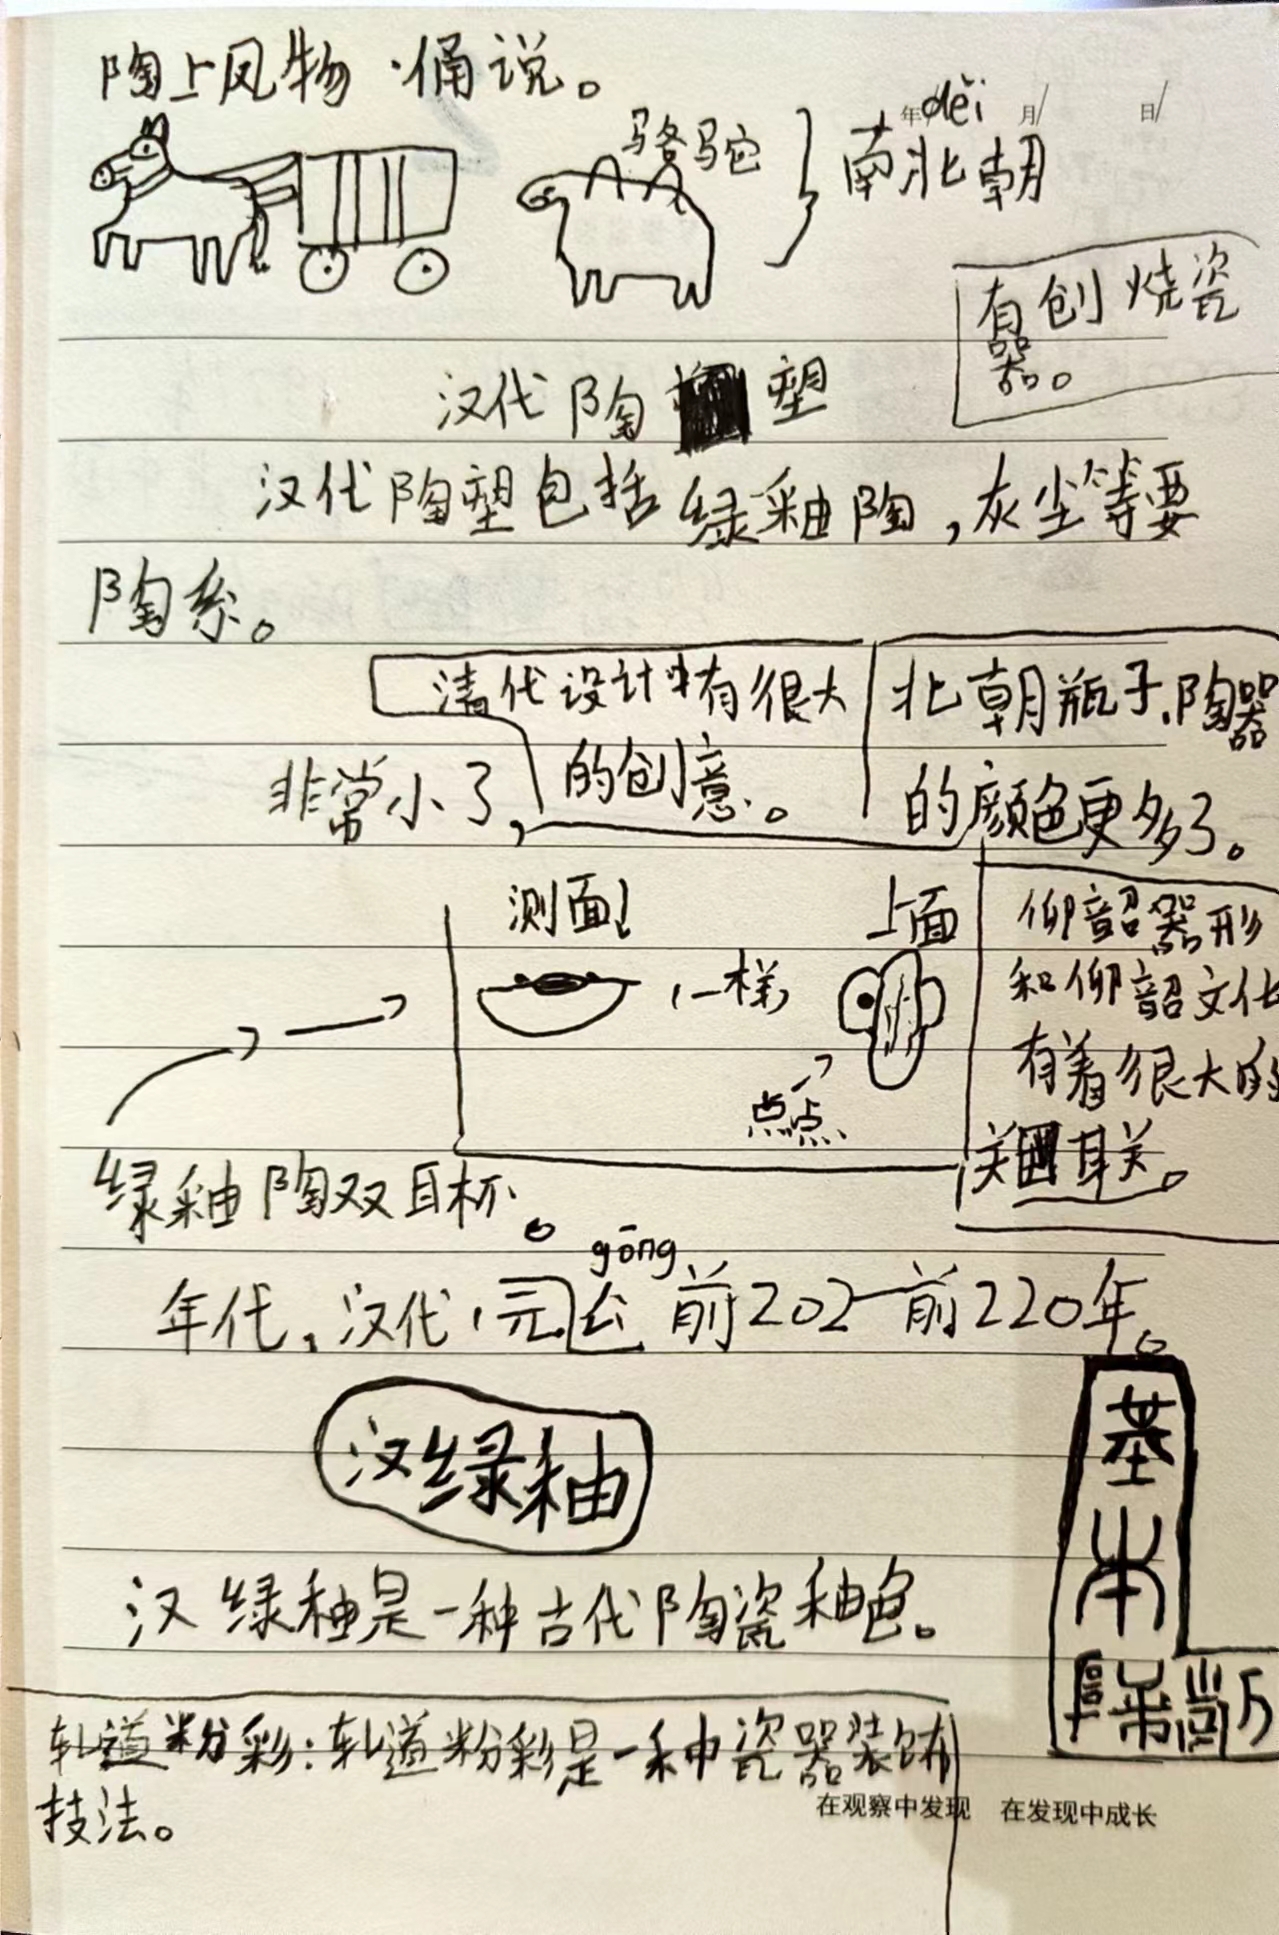 陶上风物·俑说。
年 děi 月/ 日/
骆驼
南北朝
有创烧瓷
器。
汉代陶塑
汉代陶塑包括绿釉陶,灰尘等要
陶系。
清代设计有很大
的创意。
北朝瓶子.陶器
的颜色更多了。
非常小了,
测面
上面
一样
点点
仰韶器形
和仰韶文化
有着很大的
关联。
绿釉陶双目杯。
gōng
年代,汉代,元公前202—前220年。
汉绿釉
汉绿釉是一种古代陶瓷釉色。
基
本
轧道粉彩:轧道粉彩是一种瓷器装饰
技法。
在观察中发现 在发现中成长